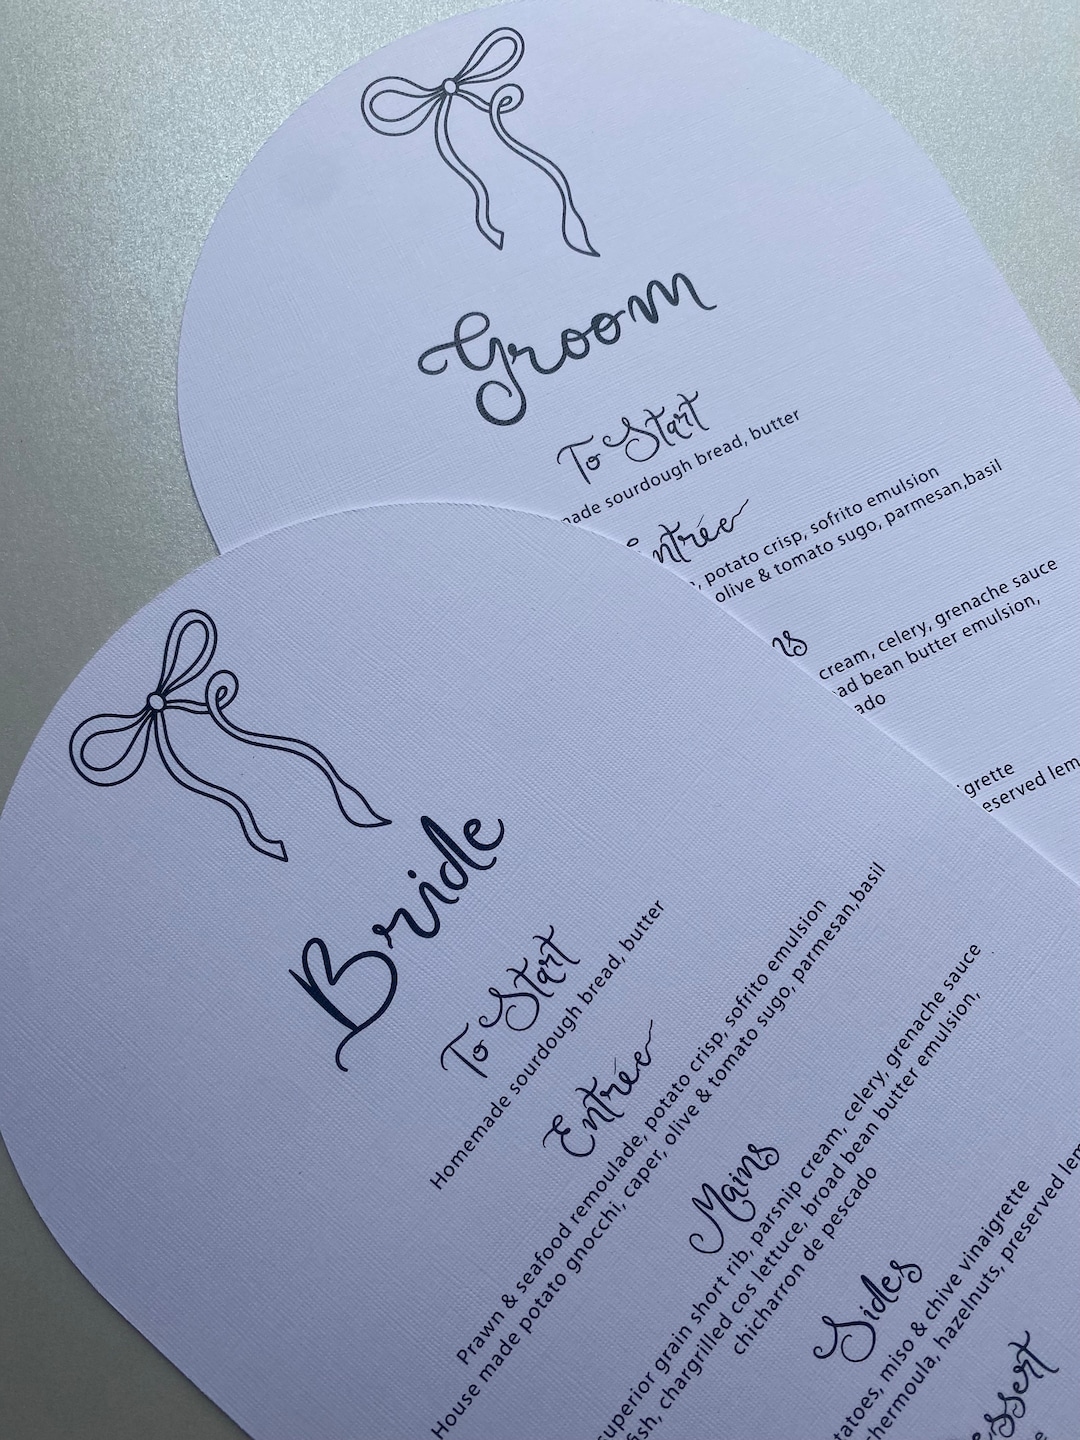 Groom
To Start
made sourdough bread, butter
Entrée
, potato crisp, sofrito emulsion
olive & tomato sugo, parmesan,basil
cream, celery, grenache sauce
bean butter emulsion,
Bride
To Start
Homemade sourdough bread, butter
Entrée
Prawn & seafood remoulade, potato crisp, sofrito emulsion
House made potato gnocchi, caper, olive & tomato sugo, parmesan,basil
Mains
superior grain short rib, parsnip cream, celery, grenache sauce
chargrilled cos lettuce, broad bean butter emulsion,
chicharron de pescado
Sides
miso & chive vinaigrette
hazelnuts, preserved